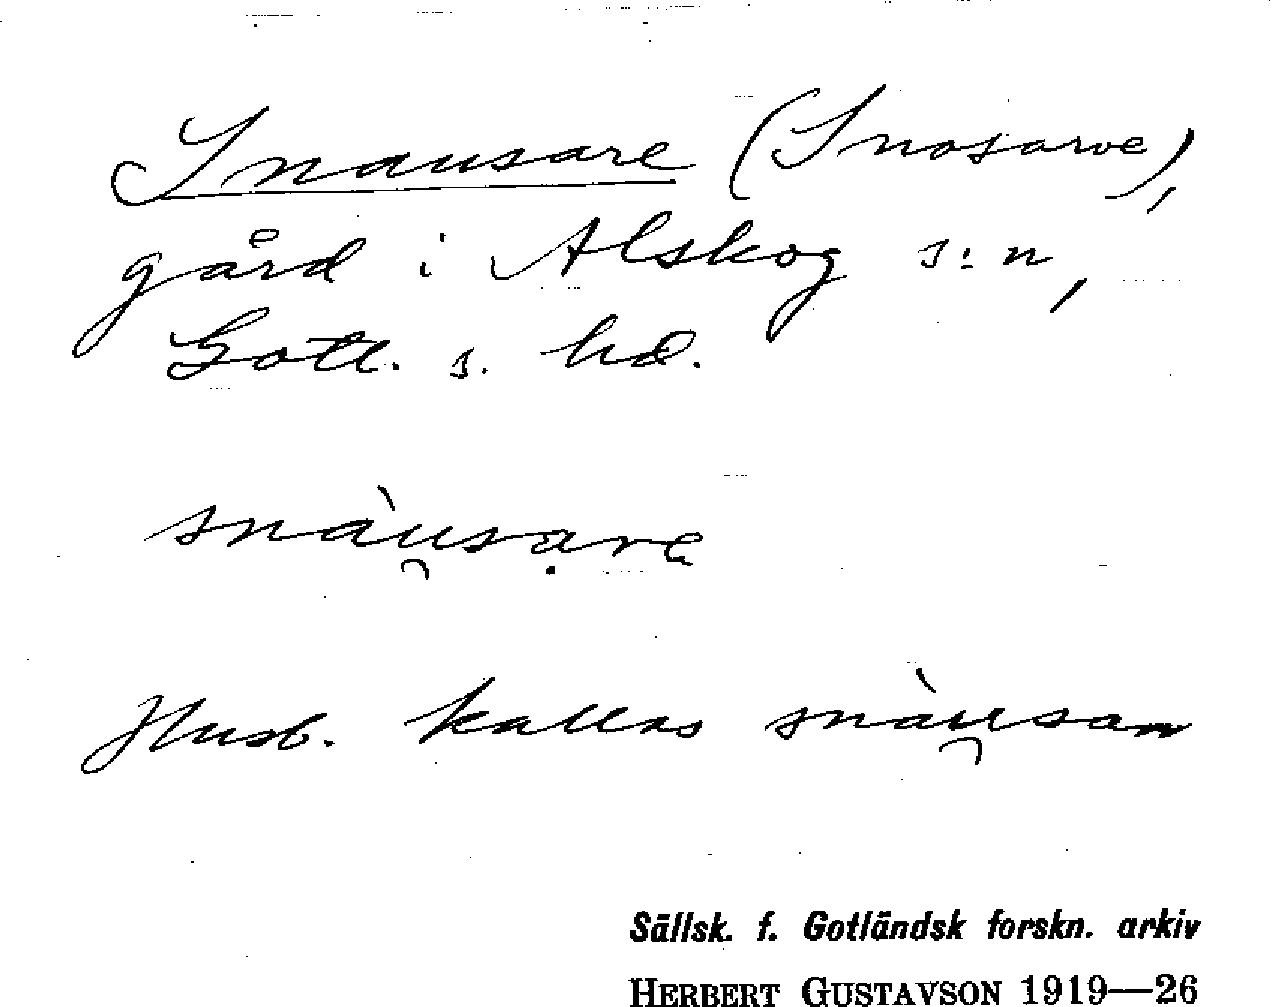 Snausare (Snosarve),
gård i Alskog s:n,
Gotl. s. hd.
snàu̯sạre
Husb. kallas snàu̯san
Sällsk. f. Gotländsk forskn. arkiv
HERBERT GUSTAVSON 1919—26